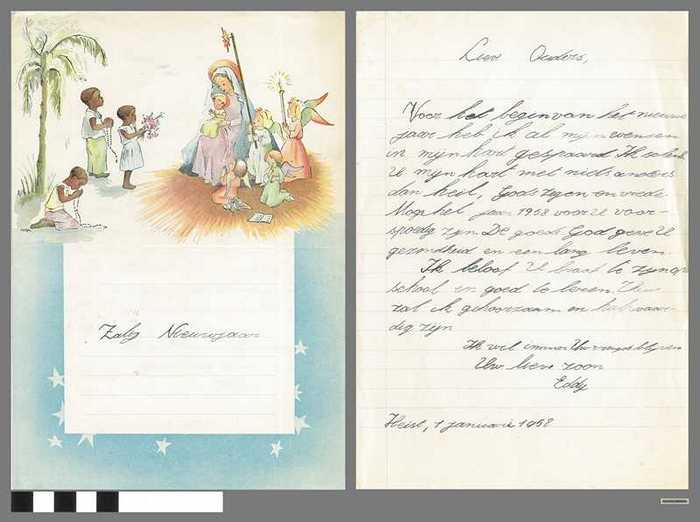 Zalig Nieuwjaar
Lieve Ouders,
Voor het begin van het nieuwe
jaar heb ik al mijn wensen
in mijn hart gespaard Ik
U mijn hart met niets anders
dan heil, Gods zegen en vrede
Moge het jaar 1958 voor U voor-
spoedig zijn De goede God geve U
gezondheid en een lang leven.
Ik beloof U braaf te zijn op
school en goed te leren. Thuis
zal ik gehoorzaam en hulpvaar-
dig zijn
Ik wil immer Uw blijven
Uw lieve zoon
Eddy
Heist, 1 januari 1958